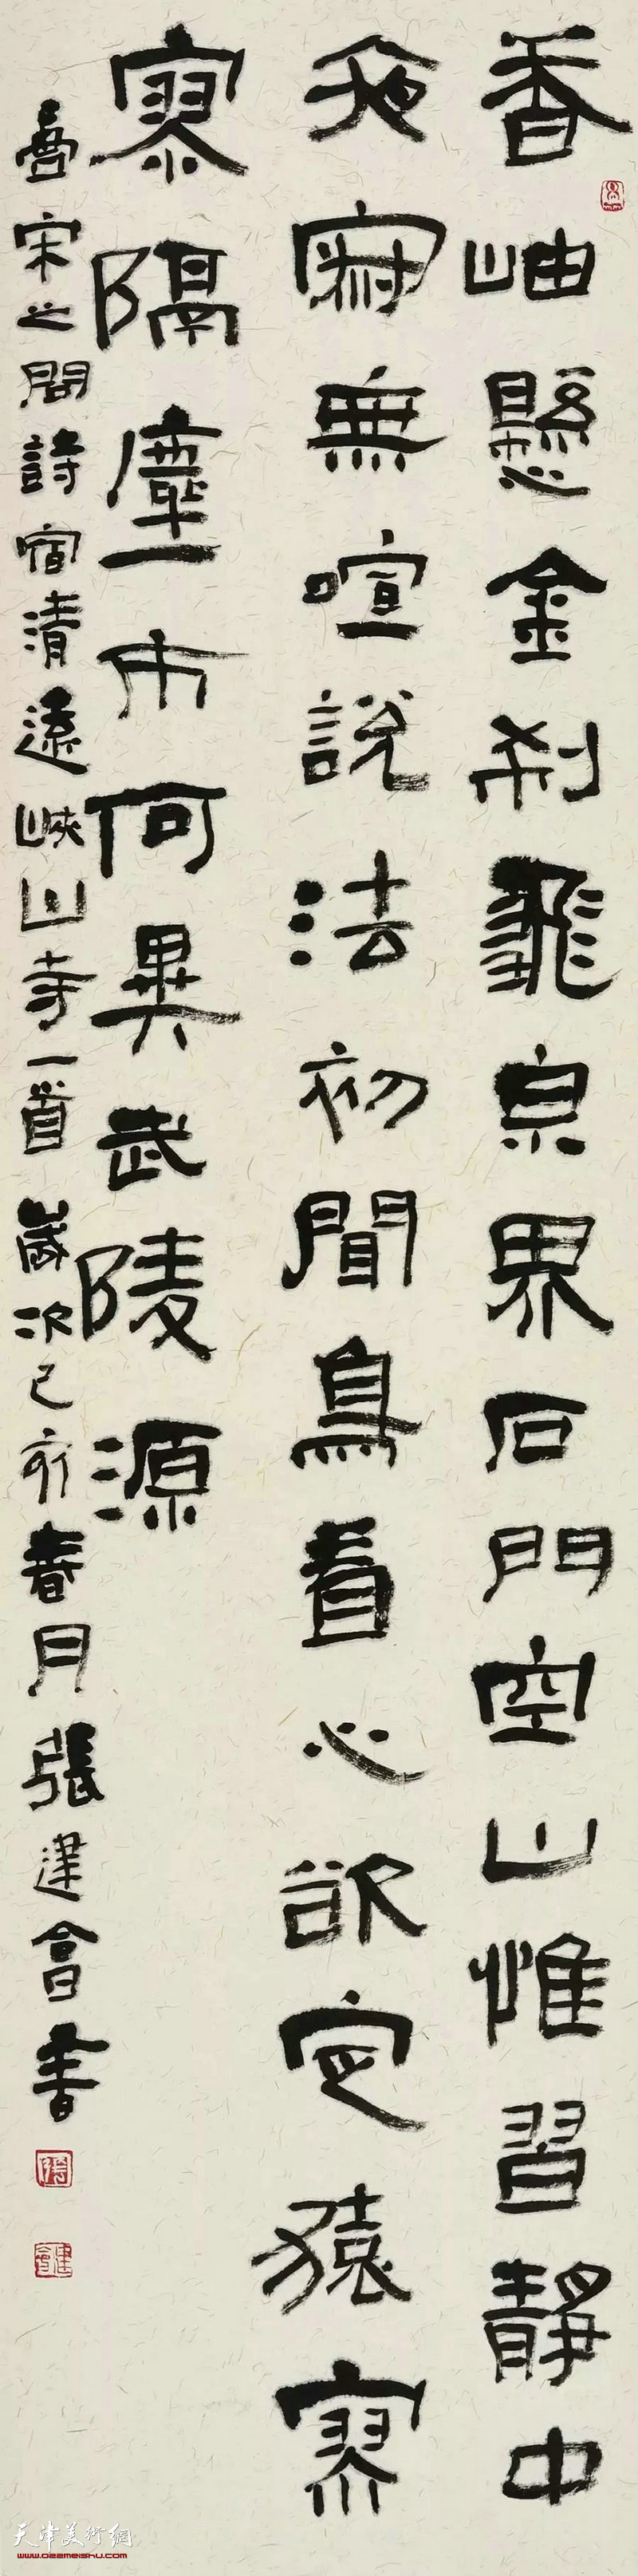 香岫懸金刹飛泉界石門空山惟習靜中
夜寂無喧說法初聞鳥看心欲定猿寥
寥隔塵市何異武陵源
宋之問詩宿清遠峽山寺一首歲次己亥春月張建會書
張
建會
天津美術網
www.022meishu.com